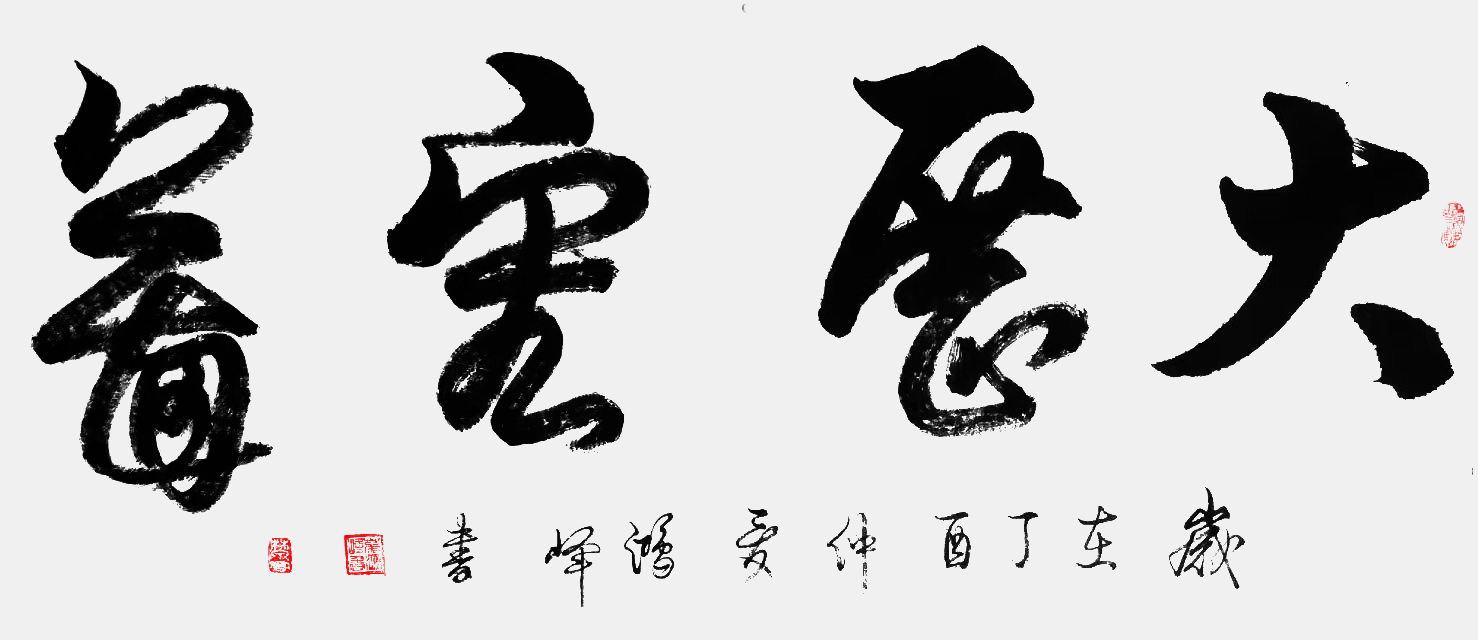 大展宏圖
歲在丁酉仲夏鴻峰書